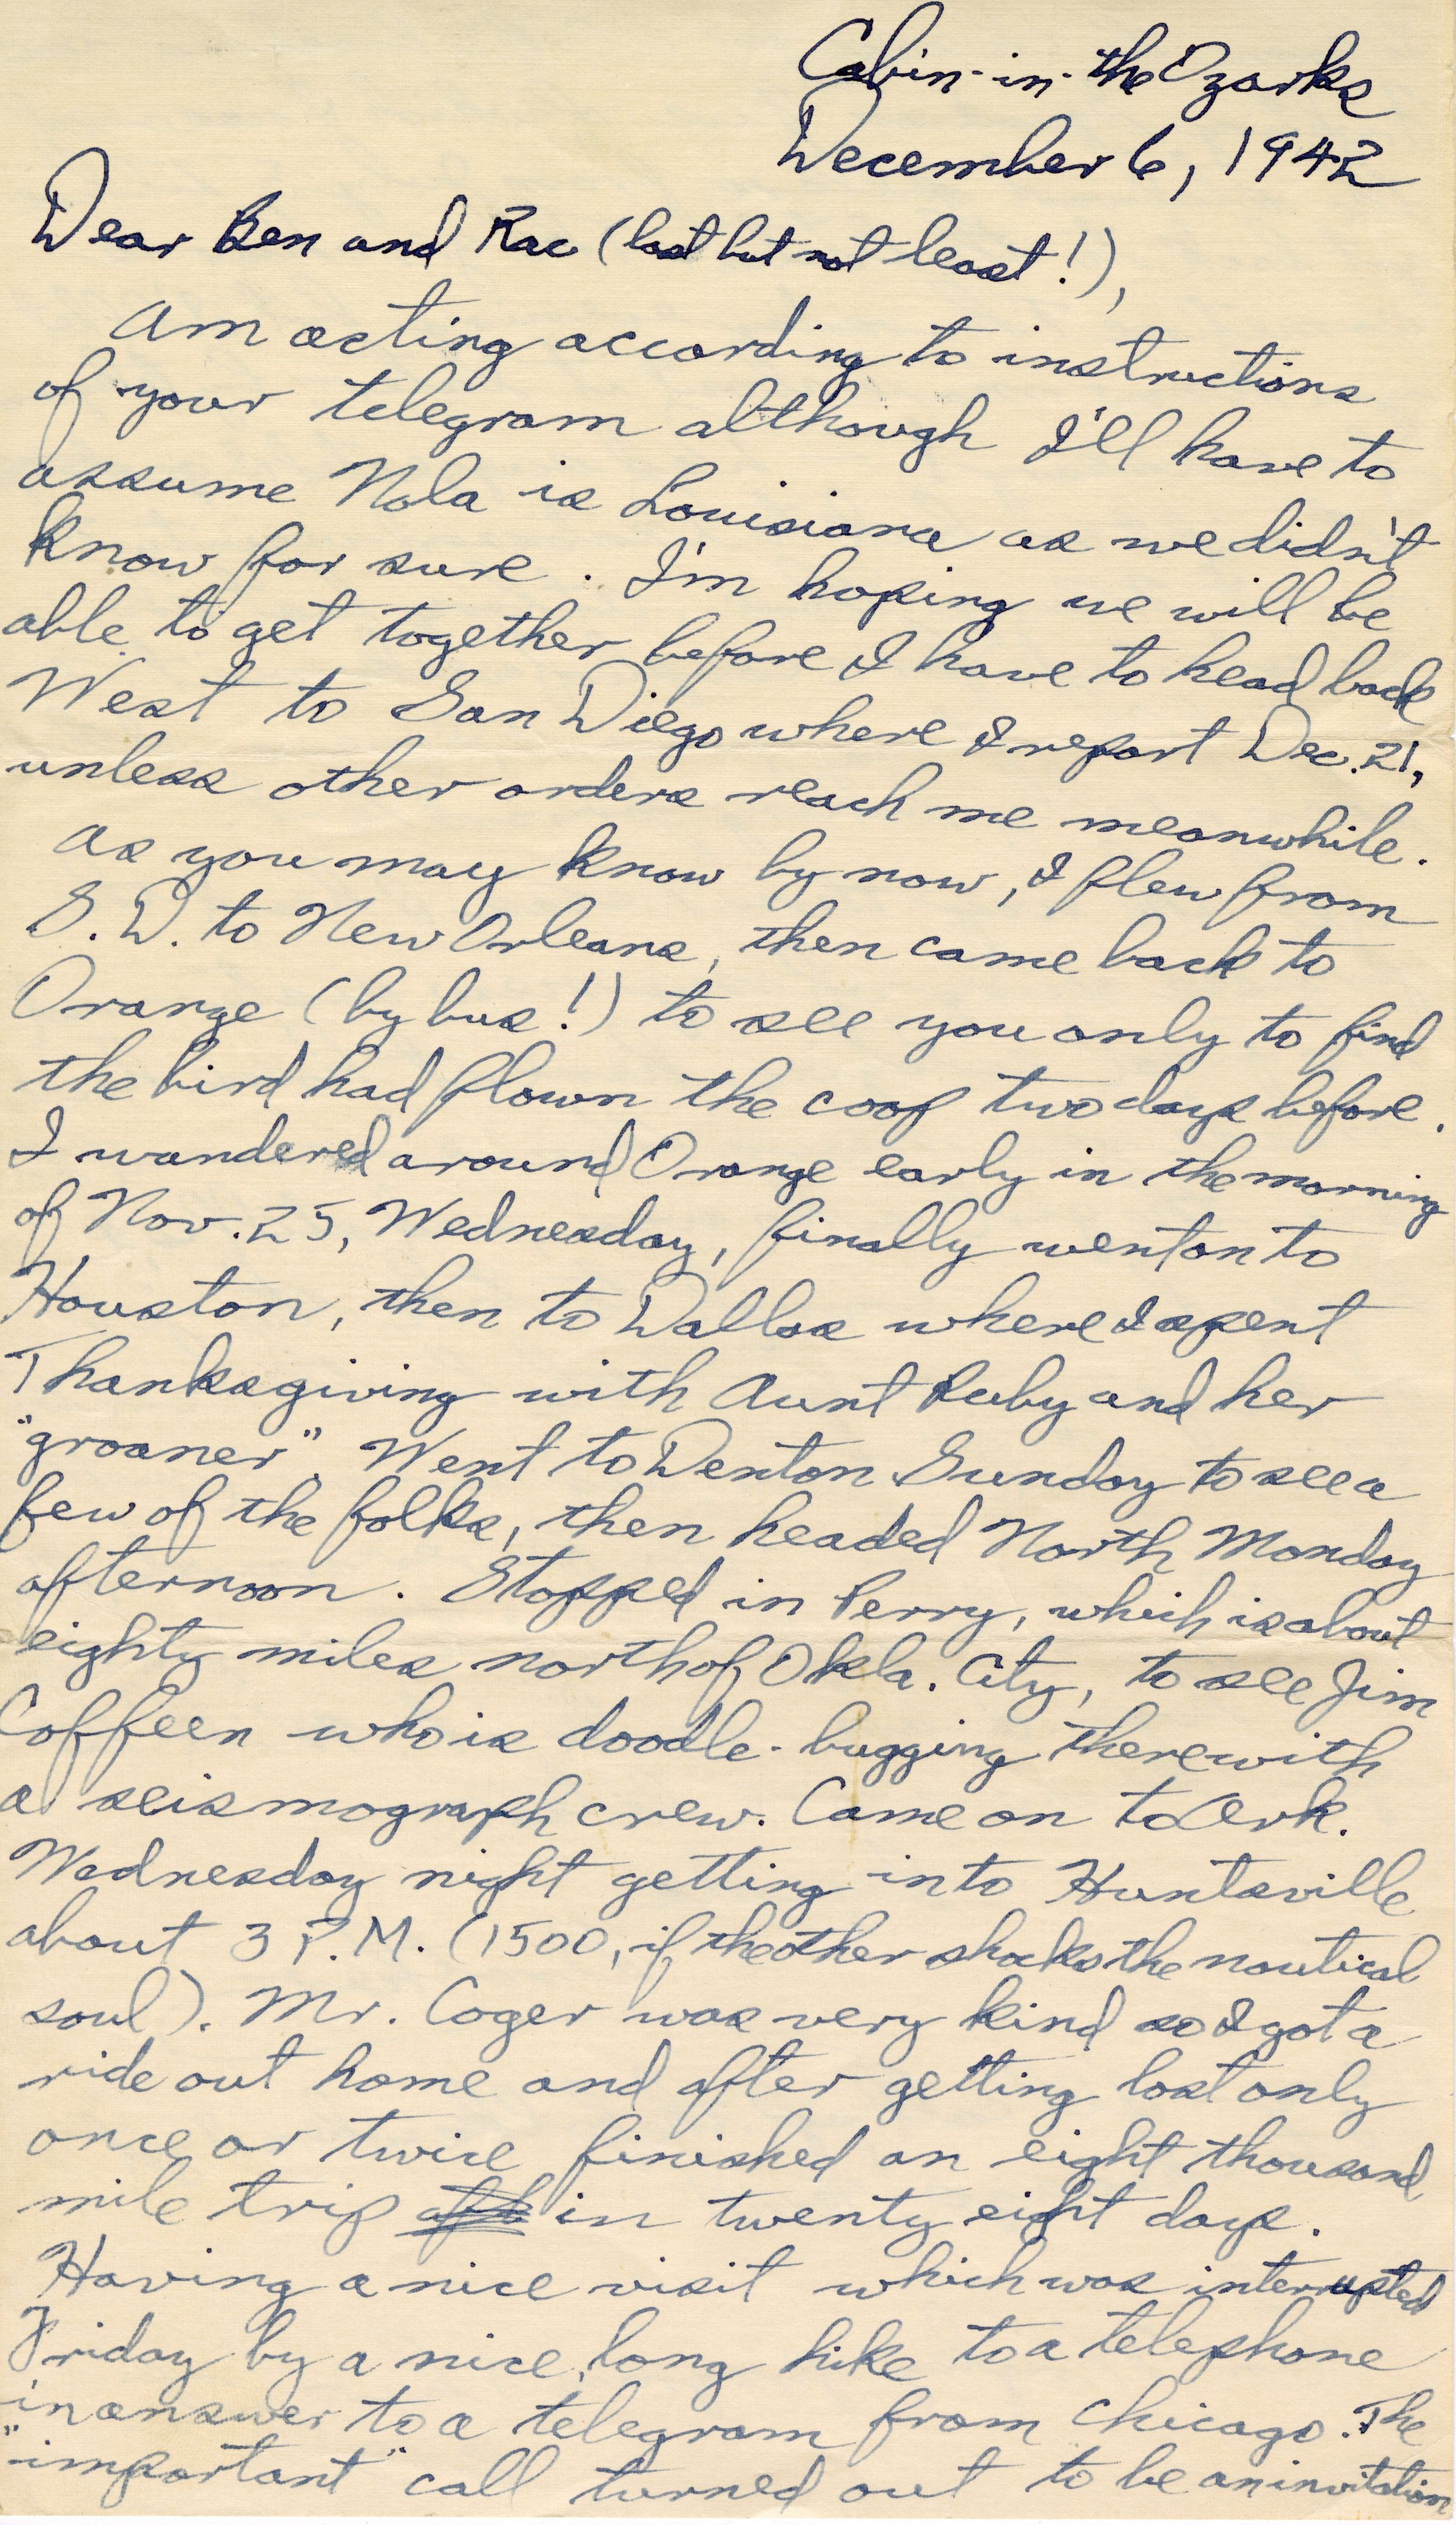 Cabin-in-the Ozarks
December 6, 1942
Dear Ben and Rae (last but not least!),
Am acting according to instructions
of your telegram although I'll have to
assume Nola is Louisiana as we didn't
know for sure. I'm hoping we will be
able to get together before I have to head back
West to San Diego where I report Dec. 21,
unless other orders reach me meanwhile.
As you may know by now, I flew from
S. D. to New Orleans, then came back to
Orange (by bus!) to see you only to find
the bird had flown the coop two days before.
I wandered around Orange early in the morning
of Nov. 25, Wednesday, finally went on to
Houston, then to Dallas where I spent
Thanksgiving with Aunt Ruby and her
"groaner". Went to Denton Sunday to see a
few of the folks, then headed North Monday
afternoon. Stopped in Perry, which is about
eighty miles north of Okla. City, to see Jim
Coffeen who is doodle-bugging there with
a seismograph crew. Came on to Ark.
Wednesday night getting into Huntsville
about 3 P.M. (1500, if the other shocks the nautical
soul). Mr. Coger was very kind so I got a
ride out home and after getting lost only
once or twice finished an eight thousand
mile trip in twenty eight days.
Having a nice visit which was interrupted
Friday by a nice, long hike to a telephone
in answer to a telegram from Chicago. The
"important" call turned out to be an invitation